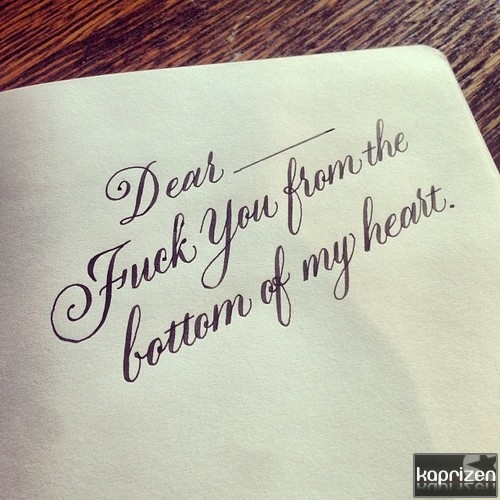 Dear ———
Fuck You from the
bottom of my heart.
kaprizen